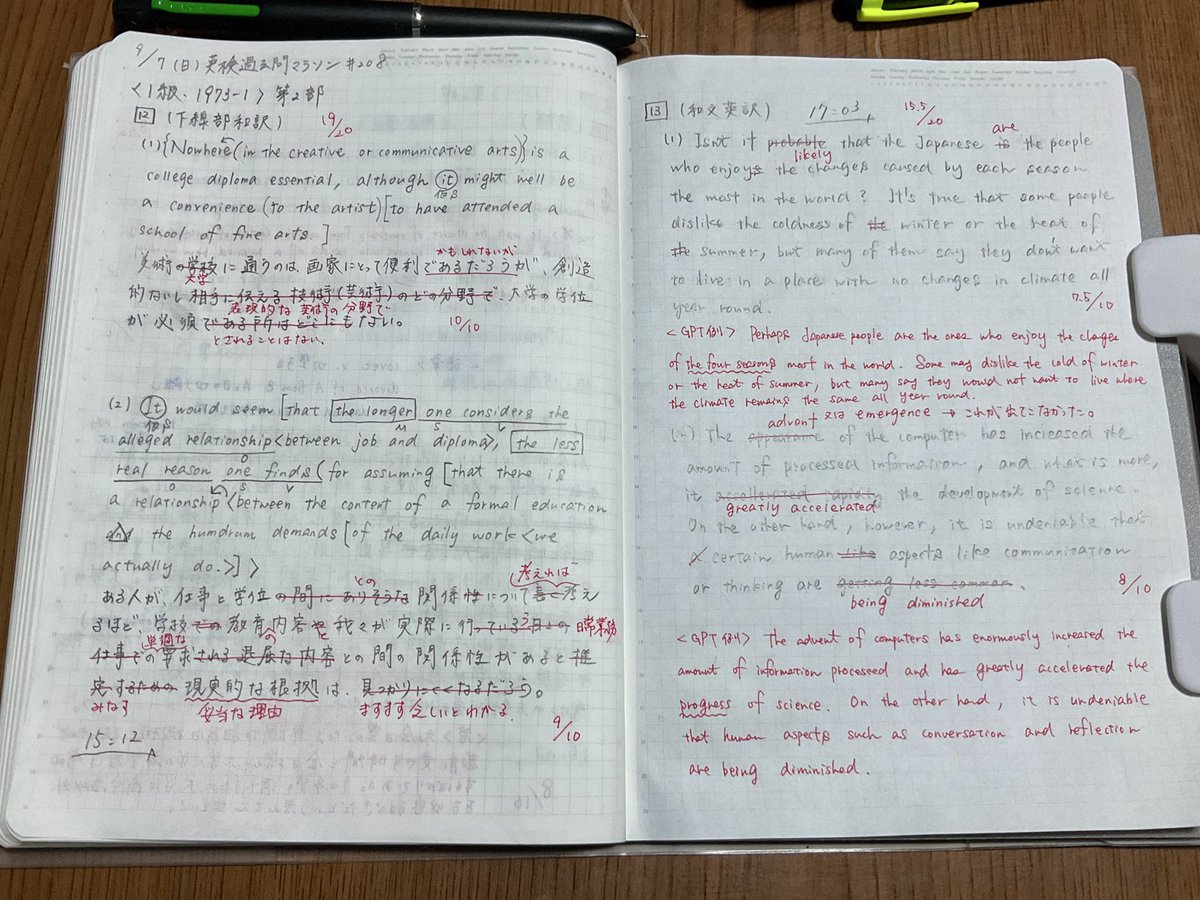 9/7(日) 英検過去問マラソン #208
<1級、1973-1> 第2部
12 (下線部和訳) 19/20
(1) {Nowhere (in the creative or communicative arts)} is a
college diploma essential, although it might well be
仮S
a convenience (to the artist) [to have attended a
school of fine arts.]
かもしれないが
美術の学校に通うのは、画家にとって便利であるだろうが、創造
大学
的ないし相手に伝える技術(芸術)のどの分野で、大学の学位
表現的な芸術の分野で
が必須である所はどこにもない。 10/10
とされることはない。
(2) It would seem [that the longer one considers the
仮S M S V
alleged relationship <between job and diploma>, the less
O
real reason one finds (for assuming [that there is
O S V
a relationship <between the content of a formal education
and the humdrum demands [of the daily work <we
actually do.>]>
との 考えれば
ある人が、仕事と学位の間にありそうな関係性について長く考え
るほど、学校での教育内容と我々が実際に行っている日々の 日常業務
単調な の
仕事での要求される退屈な内容との間の関係性があると推
定するための現実的な根拠は、見つかりにくくなるだろう。
みなす 妥当な理由 ますます乏しいとわかる。
9/10
15:12
13 (和文英訳) 17:03 15.5/20
are
(1) Isn't it probable that the Japanese is the people
likely
who enjoys the changes caused by each season
the most in the world? It's true that some people
dislike the coldness of the winter or the heat of
the summer, but many of them say they don't want
to live in a place with no changes in climate all
year round. 7.5/10
<GPT例> Perhaps Japanese people are the ones who enjoy the changes
of the four seasons most in the world. Some may dislike the cold of winter
or the heat of summer, but many say they would not want to live where
the climate remains the same all year round.
advent 又は emergence → これが出てこなかった。
(2) The appearance of the computer has increased the
amount of processed information, and what is more,
it accellerated rapidly the development of science.
greatly accelerated
On the other hand, however, it is undeniable that
a certain human like aspects like communication
or thinking are getting less common.
being diminished 8/10
<GPT例> The advent of computers has enormously increased the
amount of information processed and has greatly accelerated the
progress of science. On the other hand, it is undeniable
that human aspects such as conversation and reflection
are being diminished.